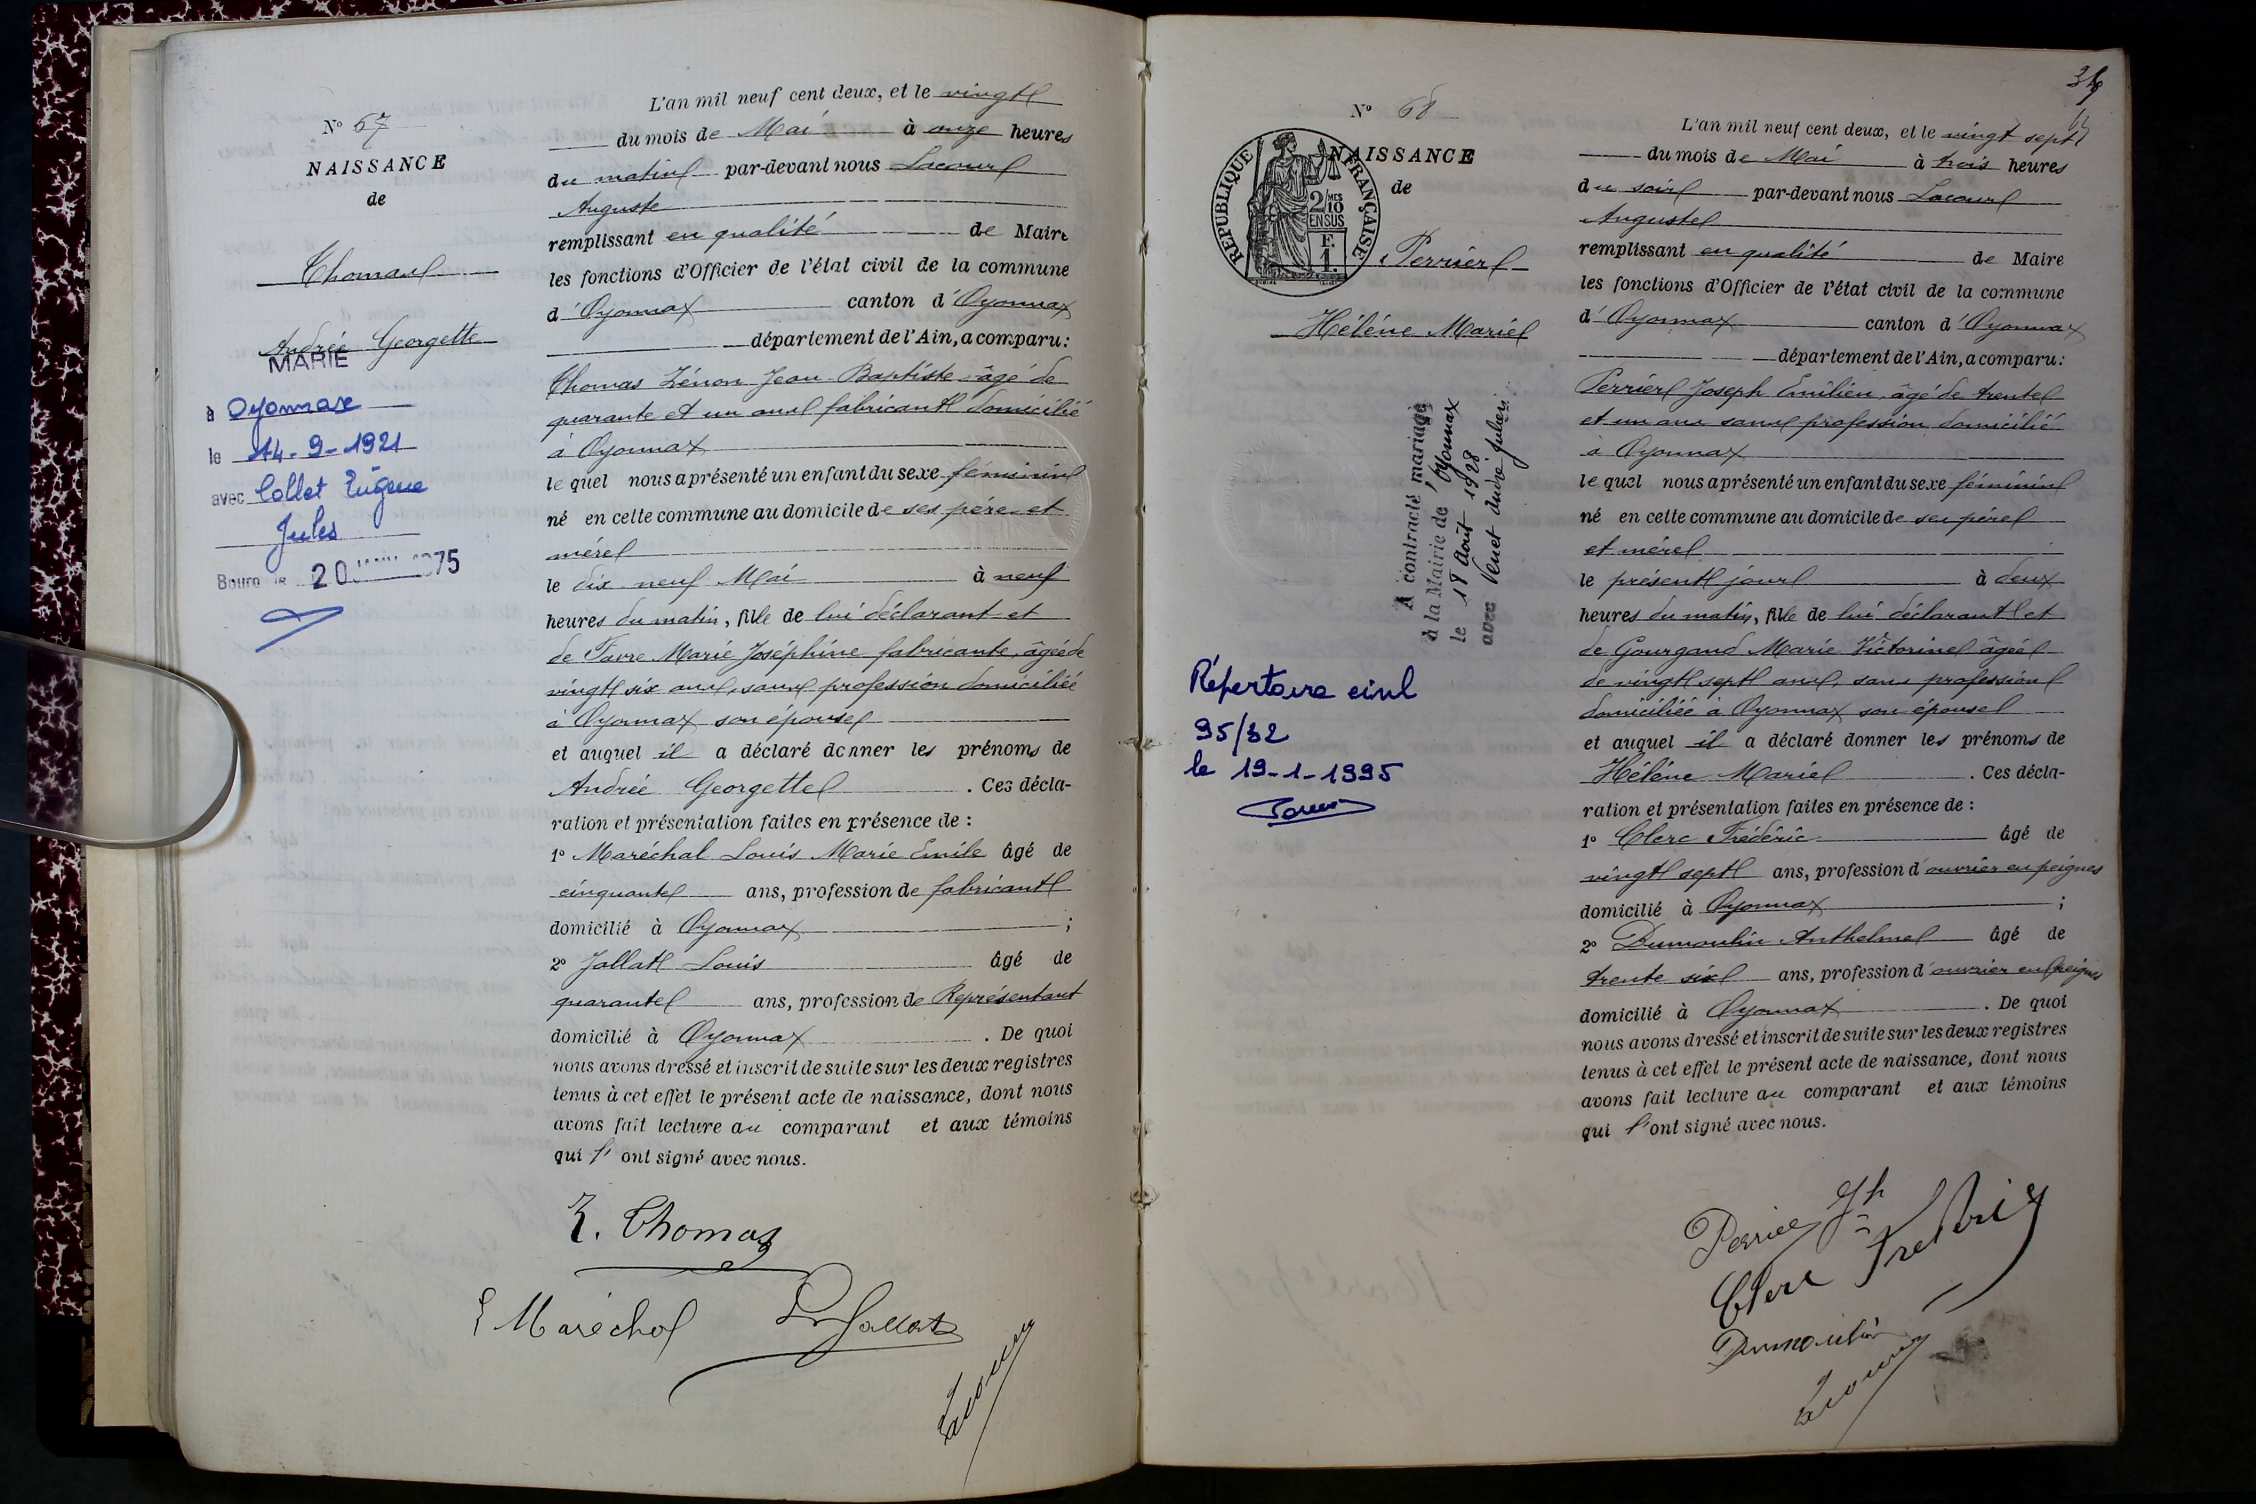 N° 67
NAISSANCE
de
Thomas
Andrée Georgette
MARIÉ
à Oyonnax
le 14-9-1921
avec Collet Eugène
Jules
Bourg le 20 1975
L'an mil neuf cent deux, et le vingt
du mois de Mai à onze heures
du matin par-devant nous Lacour
Auguste
remplissant en qualité de Maire
les fonctions d'Officier de l'état civil de la commune
d'Oyonnax canton d'Oyonnax
département de l'Ain, a comparu:
Thomas Zénon Jean-Baptiste âgé de
quarante et un ans fabricant domicilié
à Oyonnax
le quel nous a présenté un enfant du sexe féminin
né en cette commune au domicile de ses père et
mère
le dix neuf Mai à neuf
heures du matin, fille de lui déclarant et
de Favre Marie Joséphine fabricante, âgée de
vingt six ans, sans profession domiciliée
à Oyonnax son épouse
et auquel il a déclaré donner les prénoms de
Andrée Georgette. Ces décla-
ration et présentation faites en présence de :
1° Maréchal Louis Marie Emile âgé de
cinquante ans, profession de fabricant
domicilié à Oyonnax ;
2° Jallat Louis âgé de
quarante ans, profession de Représentant
domicilié à Oyonnax. De quoi
nous avons dressé et inscrit de suite sur les deux registres
tenus à cet effet le présent acte de naissance, dont nous
avons fait lecture au comparant et aux témoins
qui l'ont signé avec nous.
Z. Thomas
E Maréchal L Jallat
Lacour
N° 68
NAISSANCE
de
REPUBLIQUE FRANÇAISE
2/10 MES
EN SUS
F.
1.
Perrier
Hélène Marie
A contracté mariage
à la Mairie de, Oyonnax
le 18 Août 1928
avec Venet André Julien
Répertoire civil
95/32
le 19-1-1995
L'an mil neuf cent deux, et le vingt sept
du mois de Mai à trois heures
du soir par-devant nous Lacour
Auguste
remplissant en qualité de Maire
les fonctions d'Officier de l'état civil de la commune
d'Oyonnax canton d'Oyonnax
département de l'Ain, a comparu:
Perrier Joseph Emilien, âgé de trente
et un ans sans profession domicilié
à Oyonnax
le quel nous a présenté un enfant du sexe féminin
né en cette commune au domicile de ses père
et mère
le présent jour à deux
heures du matin, fille de lui déclarant et
de Gourgand Marie Victorine âgée
de vingt sept ans, sans profession
domiciliée à Oyonnax son épouse
et auquel il a déclaré donner les prénoms de
Hélène Marie. Ces décla-
ration et présentation faites en présence de :
1° Clerc Frédéric âgé de
vingt sept ans, profession d'ouvrier en peignes
domicilié à Oyonnax ;
2° Dumoulin Anthelme âgé de
trente six ans, profession d'ouvrier en peignes
domicilié à Oyonnax. De quoi
nous avons dressé et inscrit de suite sur les deux registres
tenus à cet effet le présent acte de naissance, dont nous
avons fait lecture au comparant et aux témoins
qui l'ont signé avec nous.
Perrier Jh
Clerc Frederic
Dumoulin
Lacour